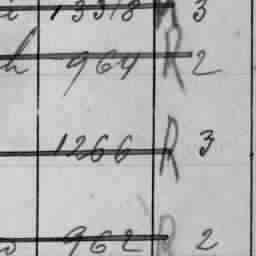 13318 R 3
h 964 R 2
1266 R 3
962 R 2